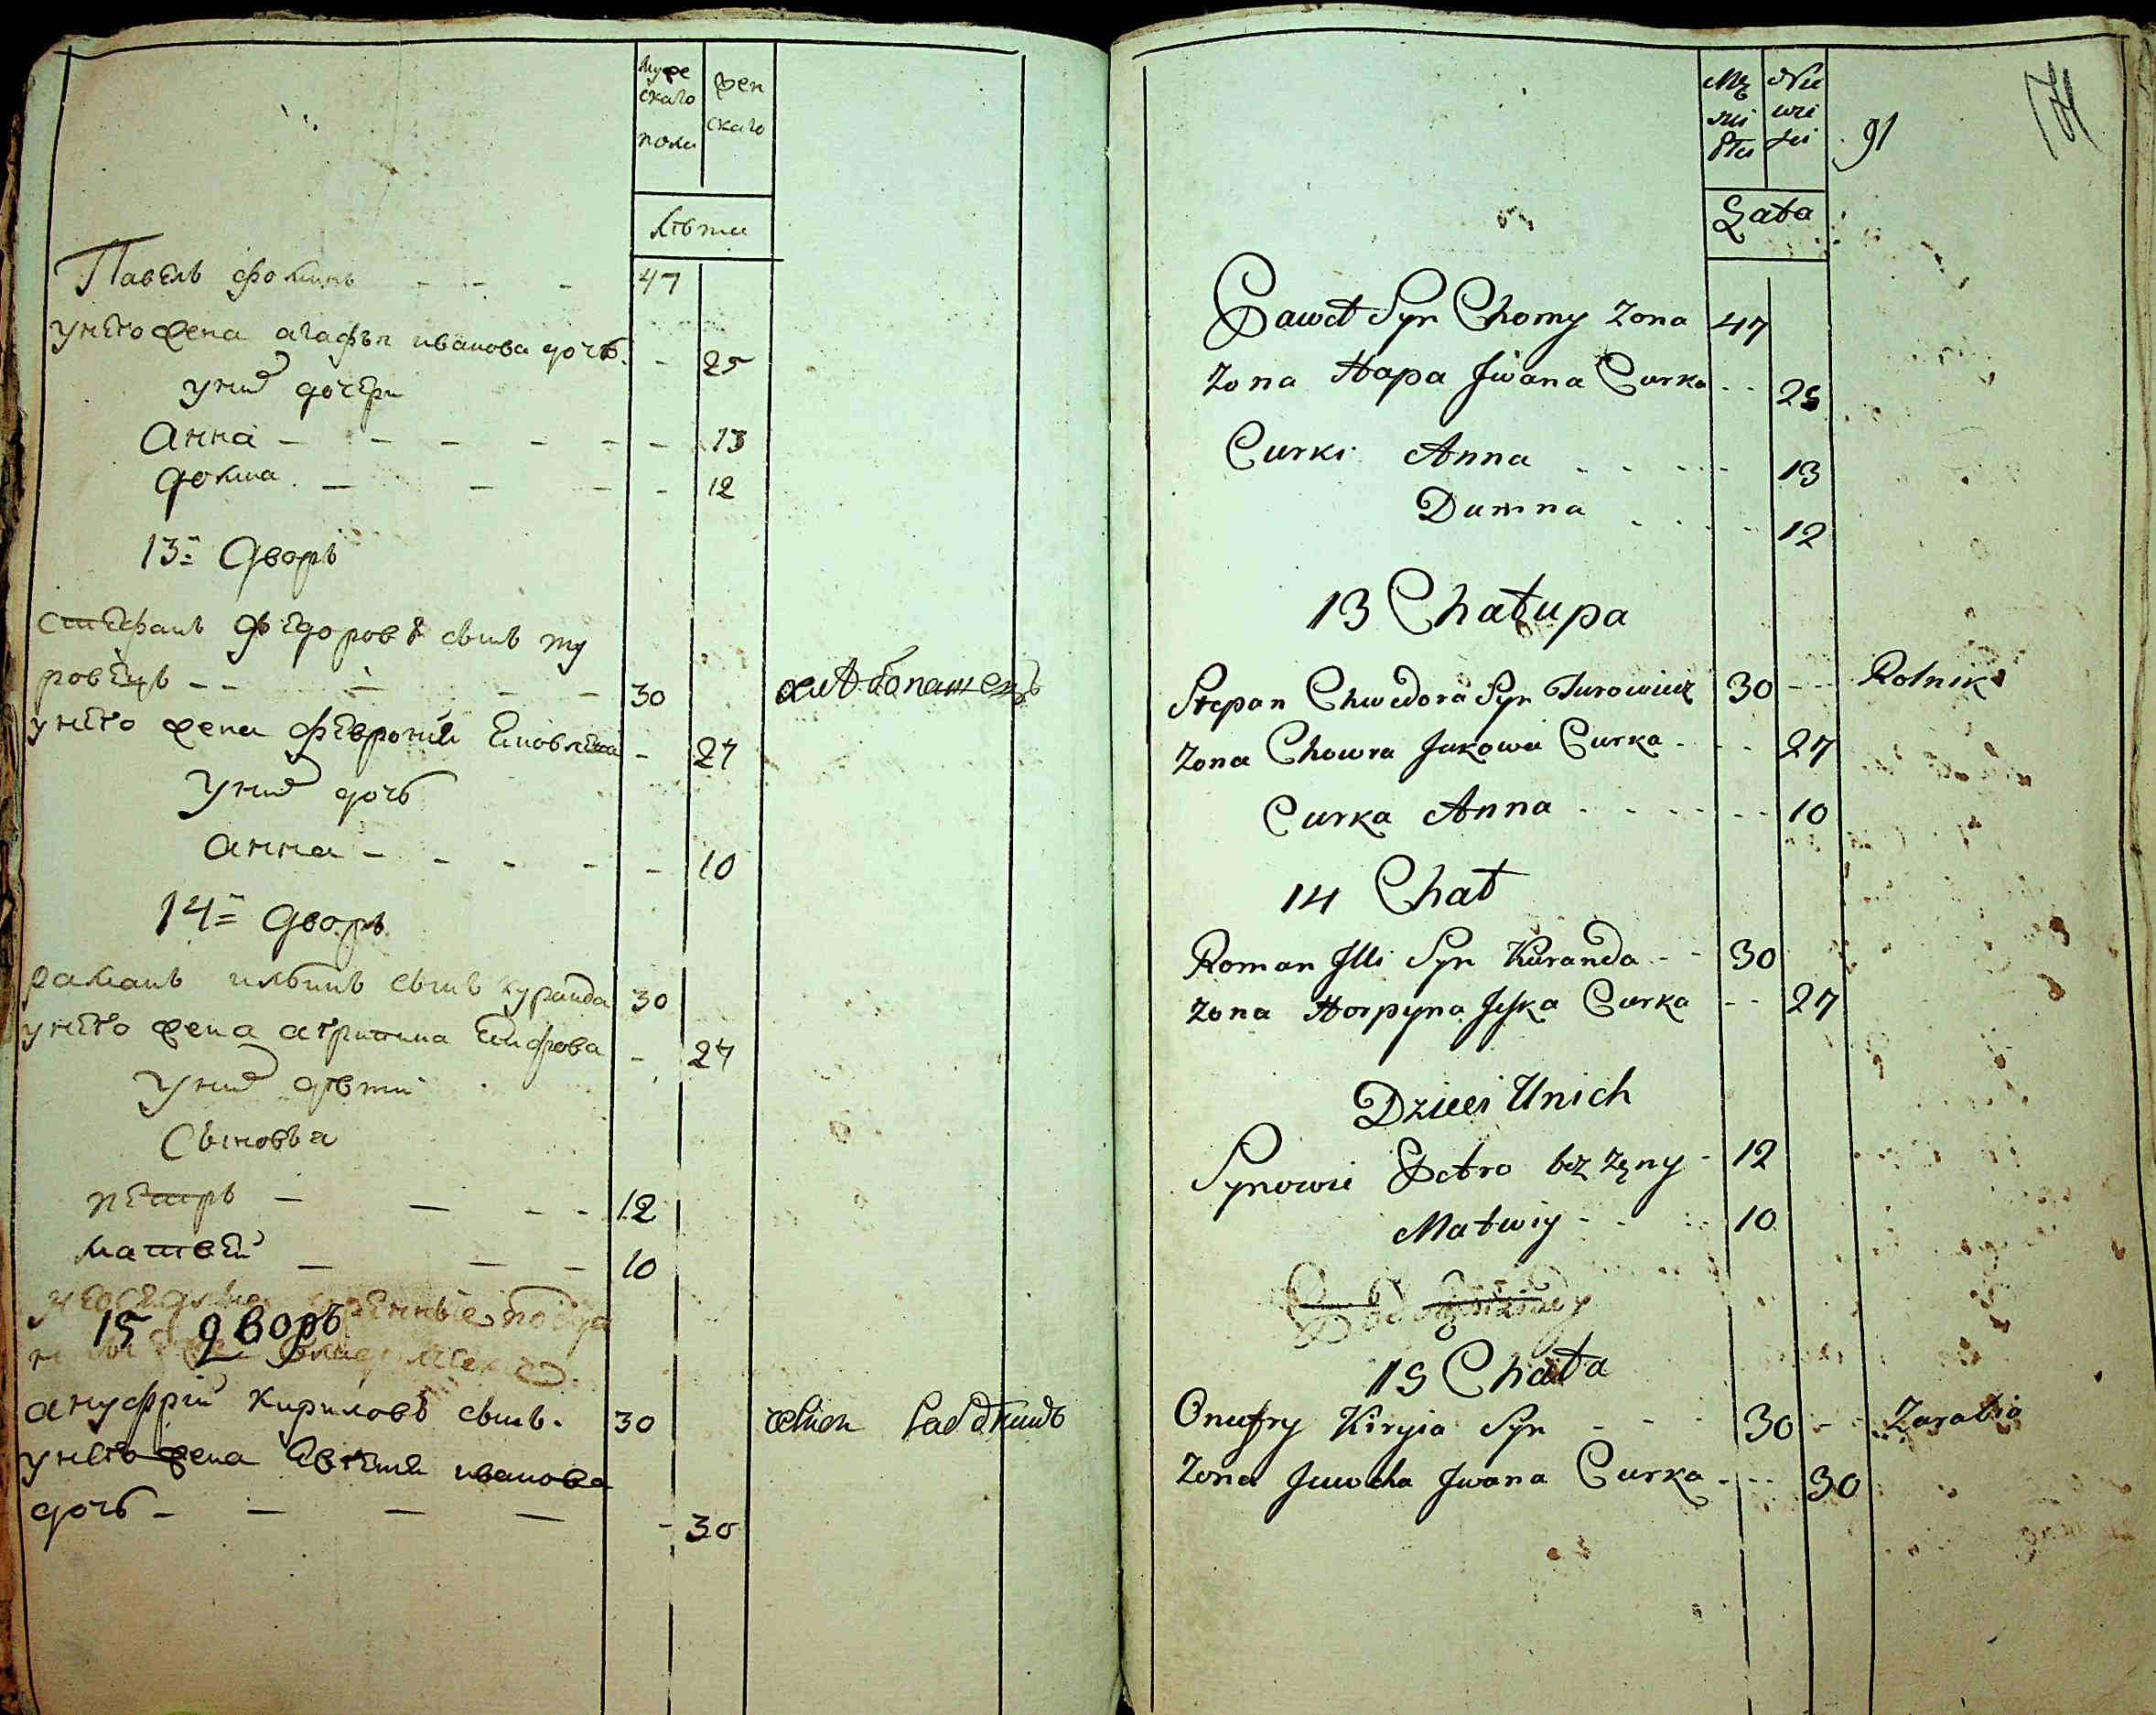 муже
скаго
полу
жен
скаго
лѣты
Павелъ фоминъ - - - 47
унего жена агафья иванова дочь - 25
уних дочери
Анна - - - - - - 13
домна - - - - 12
13й Дворъ
Стефанъ Федоровъ сынъ ту
ровецъ - - - - - 30 хлѣбопашецъ
унего жена феврония - 27
Уних дочь
анна - - - - - 10
14й дворъ
раманъ ильинъ сынъ куранда 30
унего жена агрипина - 27
Уних дѣти
Сыновья
петръ - - - - 12
матвей - - - 10
15 дворъ
ануфрий кириловъ сынъ 30
унего жена иванова
дочь - - - - - 30
Mę
ski
Płci
Nie
wie
ści
91
Lata
Paweł Syn Chomy Zona 47
Zona Hapa Jwana Curka - - 25
Curki Anna - - - - 13
Dumna - - - - 12
13 Chałupa
Stepan Chwedora Syn Turowicz 30 - - Rolnik
Zona Chowra Jakowa Curka - - - 27
Curka Anna - - - - - - 10
14 Chat
Roman Jlli Syn Kuranda - - 30
Zona Horpyna Curka - - 27
Dzieci Unich
Synowie Petro bez żony - 12
Matwiy - - - 10
15 Chata
Onufry Kiryia Syn - - - 30 - - Zarabia
Zona Jwana Curka - - - 30